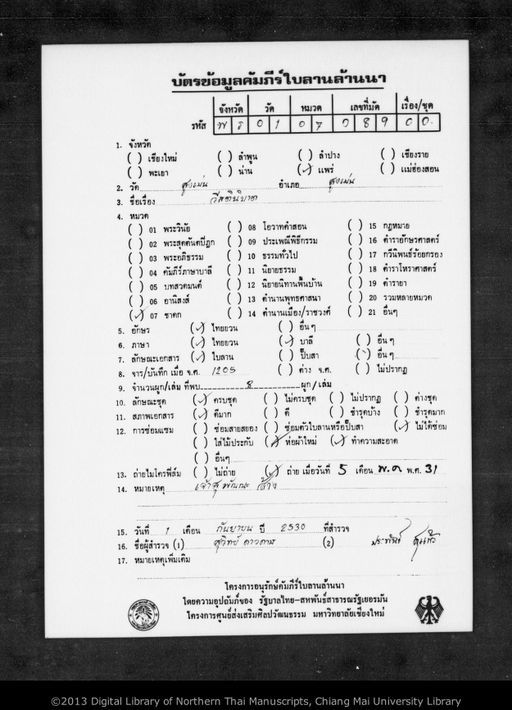 บัตรข้อมูลคัมภีร์ใบลานล้านนา
จังหวัด วัด หมวด เลขที่มัด เรื่อง/ชุด
รหัส พร 01 07 089 00
1. จังหวัด
( ) เชียงใหม่ ( ) ลำพูน ( ) ลำปาง ( ) เชียงราย
( ) พะเยา ( ) น่าน (✓) แพร่ ( ) แม่ฮ่องสอน
2. วัด สูงเม่น อำเภอ สูงเม่น
3. ชื่อเรื่อง
4. หมวด
( ) 01 พระวินัย ( ) 08 โอวาทคำสอน ( ) 15 กฎหมาย
( ) 02 พระสุตตันตปิฎก ( ) 09 ประเพณีพิธีกรรม ( ) 16 ตำราอักษรศาสตร์
( ) 03 พระอภิธรรม ( ) 10 ธรรมทั่วไป ( ) 17 กวีนิพนธ์ร้อยกรอง
( ) 04 คัมภีร์ภาษาบาลี ( ) 11 นิยายธรรม ( ) 18 ตำราโหราศาสตร์
( ) 05 บทสวดมนต์ ( ) 12 นิยายนิทานพื้นบ้าน ( ) 19 ตำรายา
( ) 06 อานิสงส์ ( ) 13 ตำนานพุทธศาสนา ( ) 20 รวมหลายหมวด
(✓) 07 ชาดก ( ) 14 ตำนานเมือง/ราชวงศ์ ( ) 21 อื่นๆ
5. อักษร (✓) ไทยยวน ( ) อื่นๆ
6. ภาษา (✓) ไทยยวน (✓) บาลี ( ) อื่นๆ
7. ลักษณะเอกสาร (✓) ใบลาน ( ) ปั๊บสา ( ) อื่นๆ
8. จาร/บันทึก เมื่อ จ.ศ. 1205 ( ) ค่าง จ.ศ. ( ) ไม่ปรากฏ
9. จำนวนผูก/เล่ม ที่พบ 8 ผูก/เล่ม
10. ลักษณะชุด (✓) ครบชุด ( ) ไม่ครบชุด ( ) ไม่ปรากฏ ( ) ค่างชุด
11. สภาพเอกสาร (✓) ดีมาก ( ) ดี ( ) ชำรุดบ้าง ( ) ชำรุดมาก
12. การซ่อมแซม ( ) ซ่อมสายสยอง ( ) ซ่อมตัวใบลานหรือปั๊บสา (✓) ไม่ได้ซ่อม
( ) ใส่ไม้ประกับ (✓) ห่อผ้าใหม่ (✓) ทำความสะอาด
( ) อื่นๆ
13. ถ่ายไมโครฟิล์ม ( ) ไม่ถ่าย (✓) ถ่าย เมื่อวันที่ 5 เดือน พ.ค. พ.ศ. 31
14. หมายเหตุ สร้าง
15. วันที่ 1 เดือน กันยายน ปี 2530 ที่สำรวจ
16. ชื่อผู้สำรวจ (1) (2)
17. หมายเหตุเพิ่มเติม
โครงการอนุรักษ์คัมภีร์ใบลานล้านนา
โดยความอุปถัมภ์ของ รัฐบาลไทย-สหพันธ์สาธารณรัฐเยอรมัน
โครงการศูนย์ส่งเสริมศิลปวัฒนธรรม มหาวิทยาลัยเชียงใหม่
©2013 Digital Library of Northern Thai Manuscripts, Chiang Mai University Library